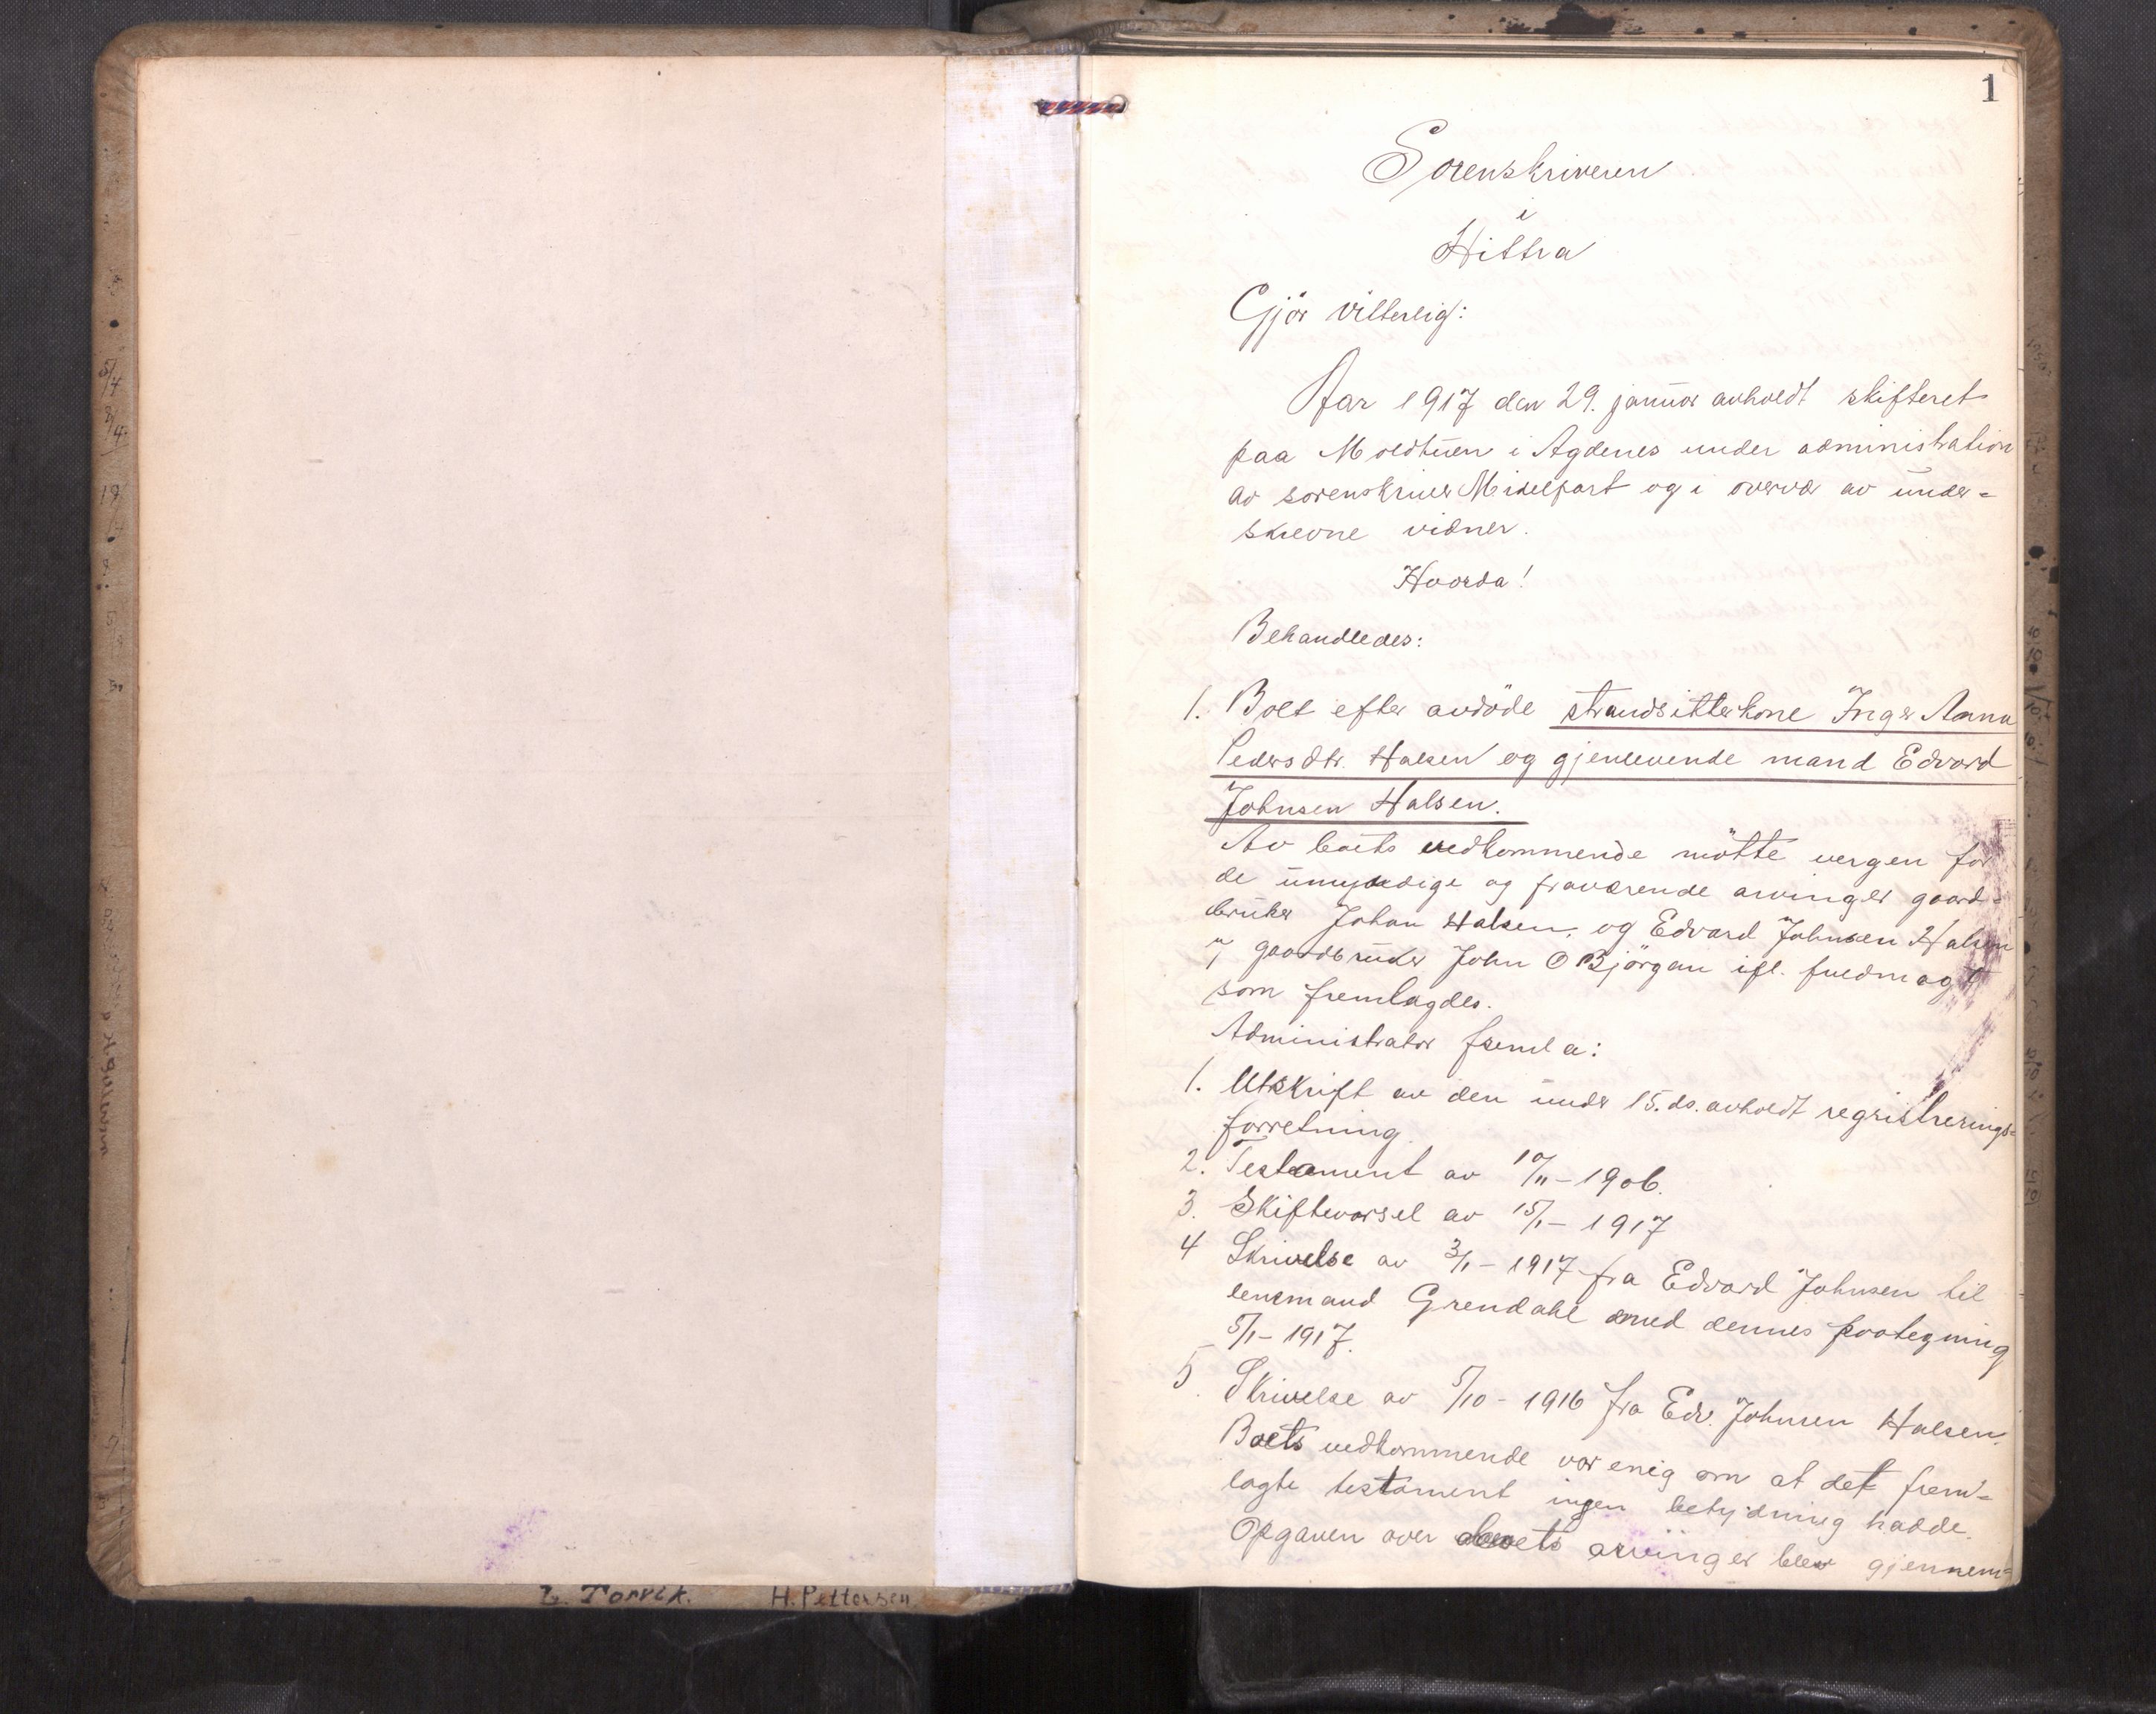 1
Sorenskriveren
i
Hittra
Gjör vitterlig:
Aar 1917 den 29. januar avholdt skifteret
paa Moldtuen i Agdenes under administration
av sorenskriver Midelfart og i overvær av under-
skrevne vidner.
Hvorda!
Behandledes:
1. Boet efter avdöde strandsitterkone Inger Anna
Pedersdtr. Halsen og gjenlevende mand Edvard
Johnsen Halsen.
Av boets vedkommende mötte vergen for
de umyndige og fraværende arvinger gaard-
bruker Johan Halsen, og Edvard Johnsen Halsen
v/ gaardbruker John O Björgan ifl. fuldmagt
som fremlagdes.
Administrator fremla:
1. Utskrift av den under 15. ds. avholdt regristrerings-
forretning
2. Testament av 10/11-1906.
3. Skiftevarsel av 15/1-1917
4 Skrivelse av 3/1-1917 fra Edvard Johnsen til
lensmand Grendahl med dennes paategning
5/1-1917.
5. Skrivelse av 5/10-1916 fra Edv. Johnsen Halsen.
Boets vedkommende var enig om at det frem-
lagte testament ingen betydning hadde.
Opgaven over boets arvinger blev gjennem-
L. Torvik. H. Pettersen